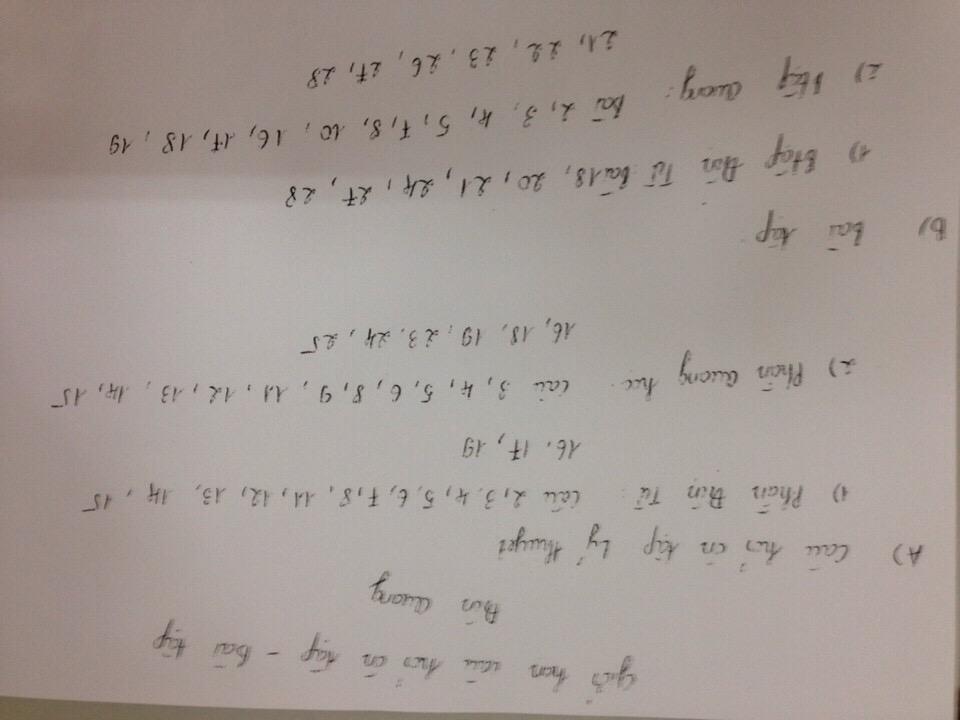 Giới hạn câu hỏi ôn tập - Bài tập
Điện Quang
A) Câu hỏi ôn tập Lý thuyết
1) Phần Điện Từ: Câu 2, 3, 4, 5, 6, 7, 8, 11, 12, 13, 14, 15
16, 17, 19
2) Phần Quang học: Câu 3, 4, 5, 6, 8, 9, 11, 12, 13, 14, 15
16, 18, 19, 23, 24, 25
B) Bài tập
1) Btập Điện Từ Bài 18, 20, 21, 24, 27, 28
2) Btập Quang: Bài 2, 3, 4, 5, 7, 8, 10, 16, 17, 18, 19
21, 22, 23, 26, 27, 28